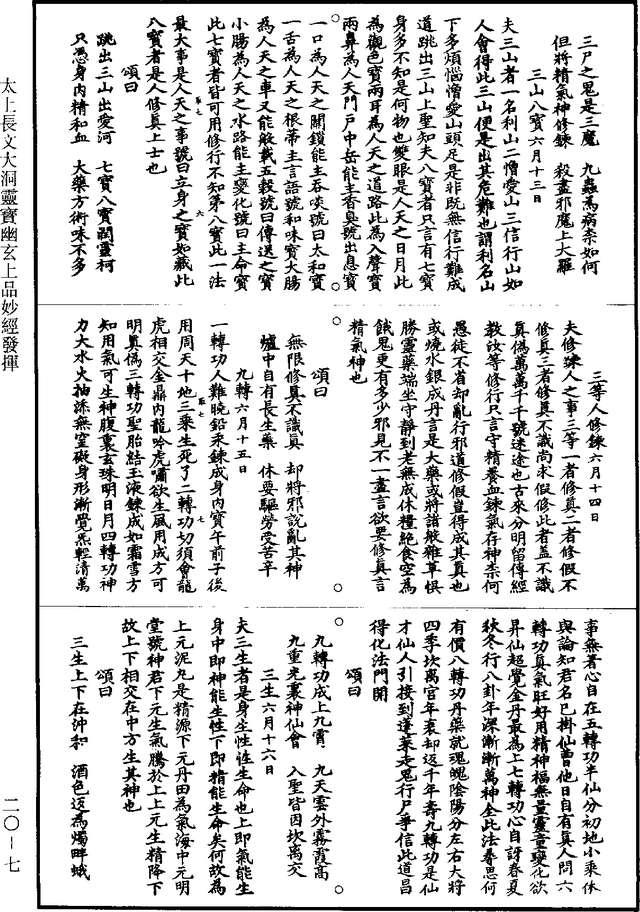 三尸之鬼是三魔　九蟲為病柰如何
但將精氣神修鍊　殺盡邪魔上大羅
三山八寶六月十三日
夫三山者一名利山二憎愛山三信行山如
人會得此三山便是出其危難也謂利名山
下多煩惱憎愛山頭足是非既無信行難成
道跳出三山上聖知夫八寶者只言有七寶
身多不知是何物也雙眼是人天之日月此
為觀色寶兩耳為人天之道路此為入聲寶
兩鼻為人天門戶中岳能主香臭號出息寶
一口為人天之關鎖能主吞啖號曰太和寶
一舌為人天之根蒂主言語號和味寶大腸
為人天之車又能般載五穀號曰傳送之寶
小腸為人天之水路能主變化號曰主命寶
此七寶者皆可用修行不知第八寶此一法
最大事是人天之事號曰立身之寶如藏此
八寶者是人修真上士也
頌曰
跳出三山出愛河　七寶八寶潤靈柯
只憑身內精和血　大藥方術味不多
三等人修鍊六月十四日
夫修鍊人之事三等一者修真二者修假不
修真三者修真不識尚求假修此者蓋不識
真偽萬萬千千號迷途也古來分明留傳經
教汝等修行只言守精養血鍊氣存神柰何
愚徒不省却亂行邪道修假豈得成其真也
或燒水銀成丹言是大藥或將諸般雜草俱
勝靈藥端坐守靜到老無成休糧絕食空為
餓鬼更有多少邪見不一盡言欲要修真言
精氣神也
頌曰
無限修真不識真　却將邪說亂其神
爐中自有長生藥　休要驅勞受苦辛
九轉六月十五日
一轉功人難曉鉛汞鍊成身內寶午前子後
用周天十地三乘生死了二轉功切須會龍
虎相交金鼎內龍吟虎嘯欲生風用成方可
明真偽三轉功聖胎結玉液鍊成如霜雪方
知用氣可生神腹裏玄珠明日月四轉功神
力大水火抽添無窒礙身形漸覺炁輕清萬
事無著心自在五轉功半仙分初地小乘休
與論知君名已掛仙曹他日自有真人問六
轉功真氣旺好用精神福無量靈童變化欲
昇仙超覺金丹最為上七轉功心自訝春夏
秋冬行八卦年深漸漸萬神全此法眷思何
有價八轉功丹藥就魂魄陰陽分左右大將
四季坎离宮年衰却返千年壽九轉功是仙
才仙人引接到蓬萊走鬼行尸爭信此道昌
得化法門開
頌曰
九轉功成上九霄　九天雲外霧霞高
九重光裏神仙會　入聖皆因坎离交
三生六月十六日
夫三生者是身生性性生命也上即氣能生
身中即神能生性下即精能生命矣何故為
上元泥丸是精源下元丹田為氣海中元明
堂號神君下元生氣騰於上上元生精降下
故上下相交在中方生其神也
頌曰
三生上下在沖和　酒色迈為燭畔蛾
太上長文大洞靈寶幽玄上品妙經發揮
二〇－七